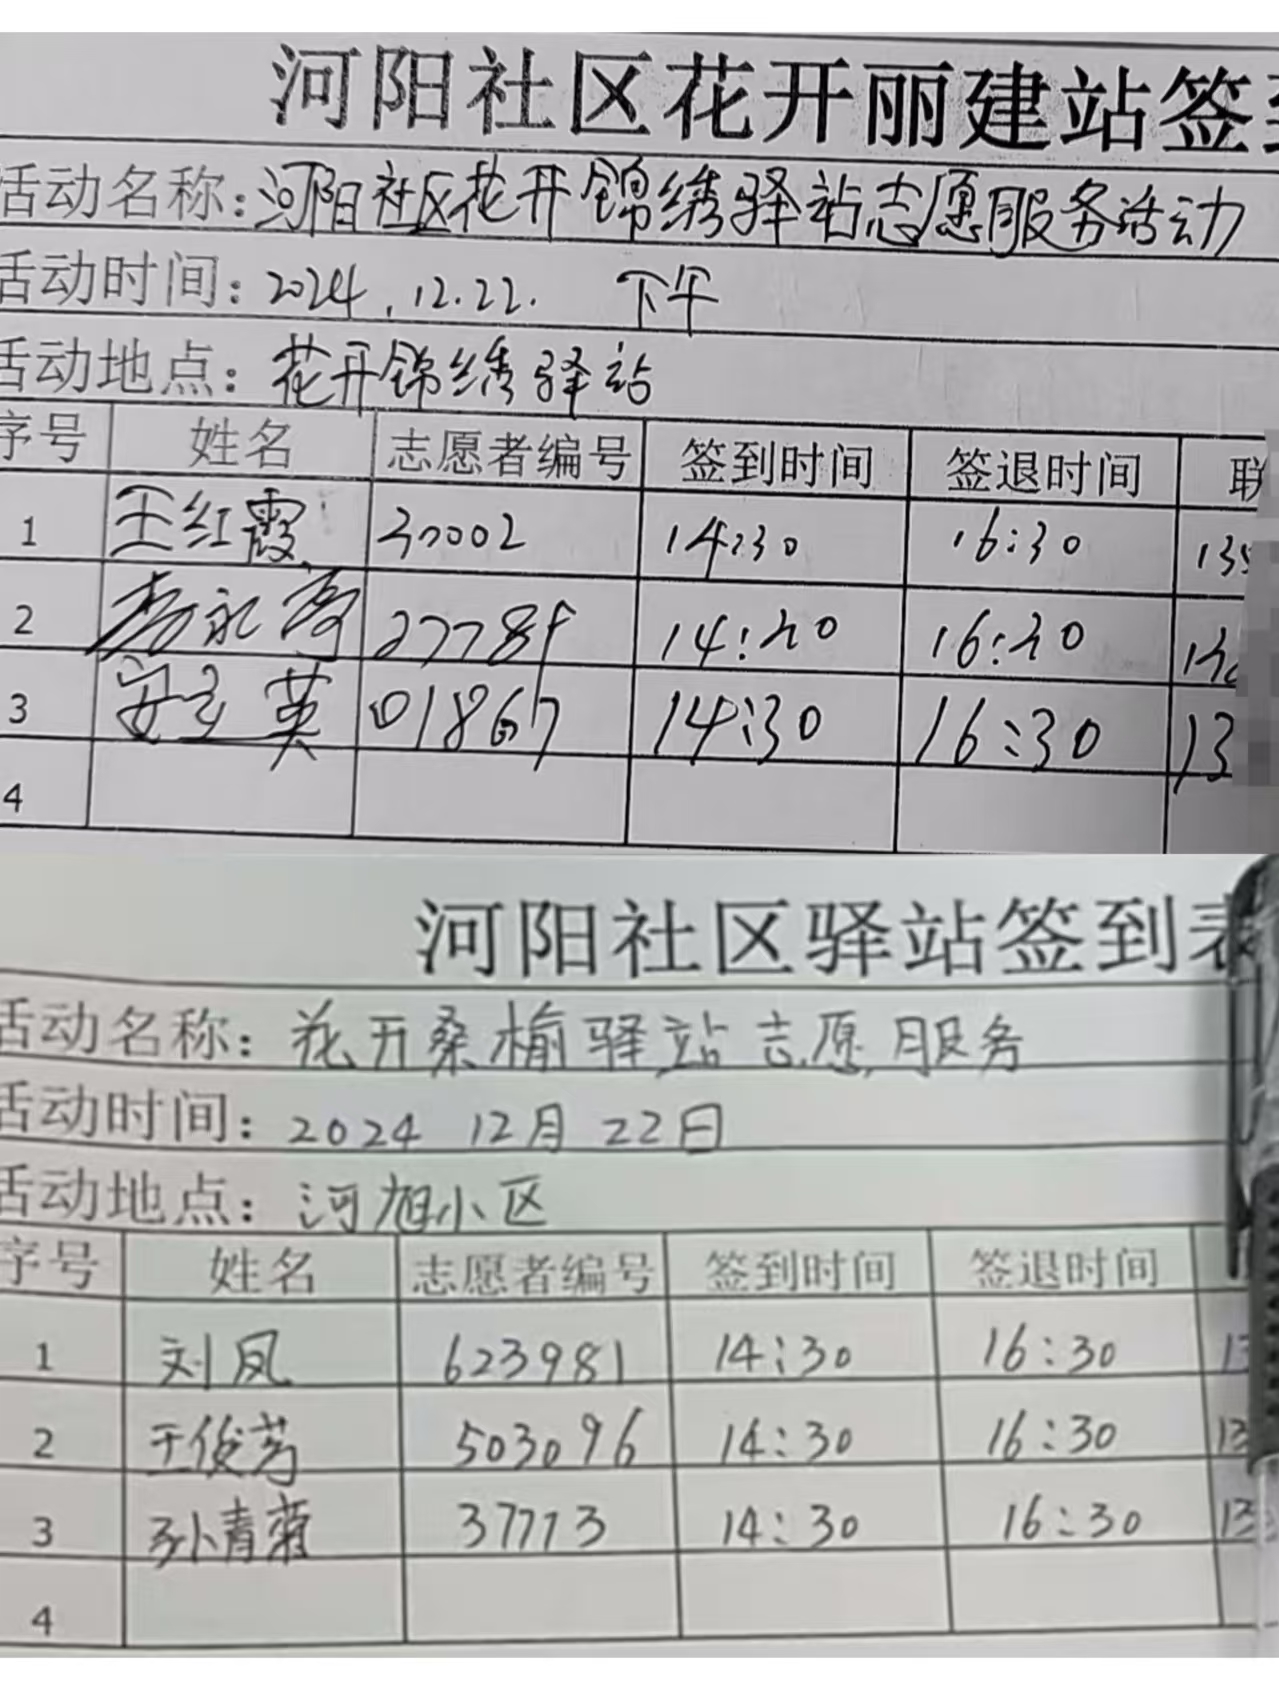 河阳社区花开丽建站签到
活动名称：河阳社区花开锦绣驿站志愿服务活动
活动时间：2024.12.22. 下午
活动地点：花开锦绣驿站
序号 姓名 志愿者编号 签到时间 签退时间 联
1 王红霞 30002 14:30 16:30 135
2 14:30 16:30
3 安玉英 01867 14:30 16:30 13
4
河阳社区驿站签到表
活动名称：花开桑榆驿站志愿服务
活动时间：2024 12月22日
活动地点：河旭小区
序号 姓名 志愿者编号 签到时间 签退时间
1 刘凤 623981 14:30 16:30 13
2 王俊芳 503096 14:30 16:30 13
3 孙青菊 37713 14:30 16:30 13
4